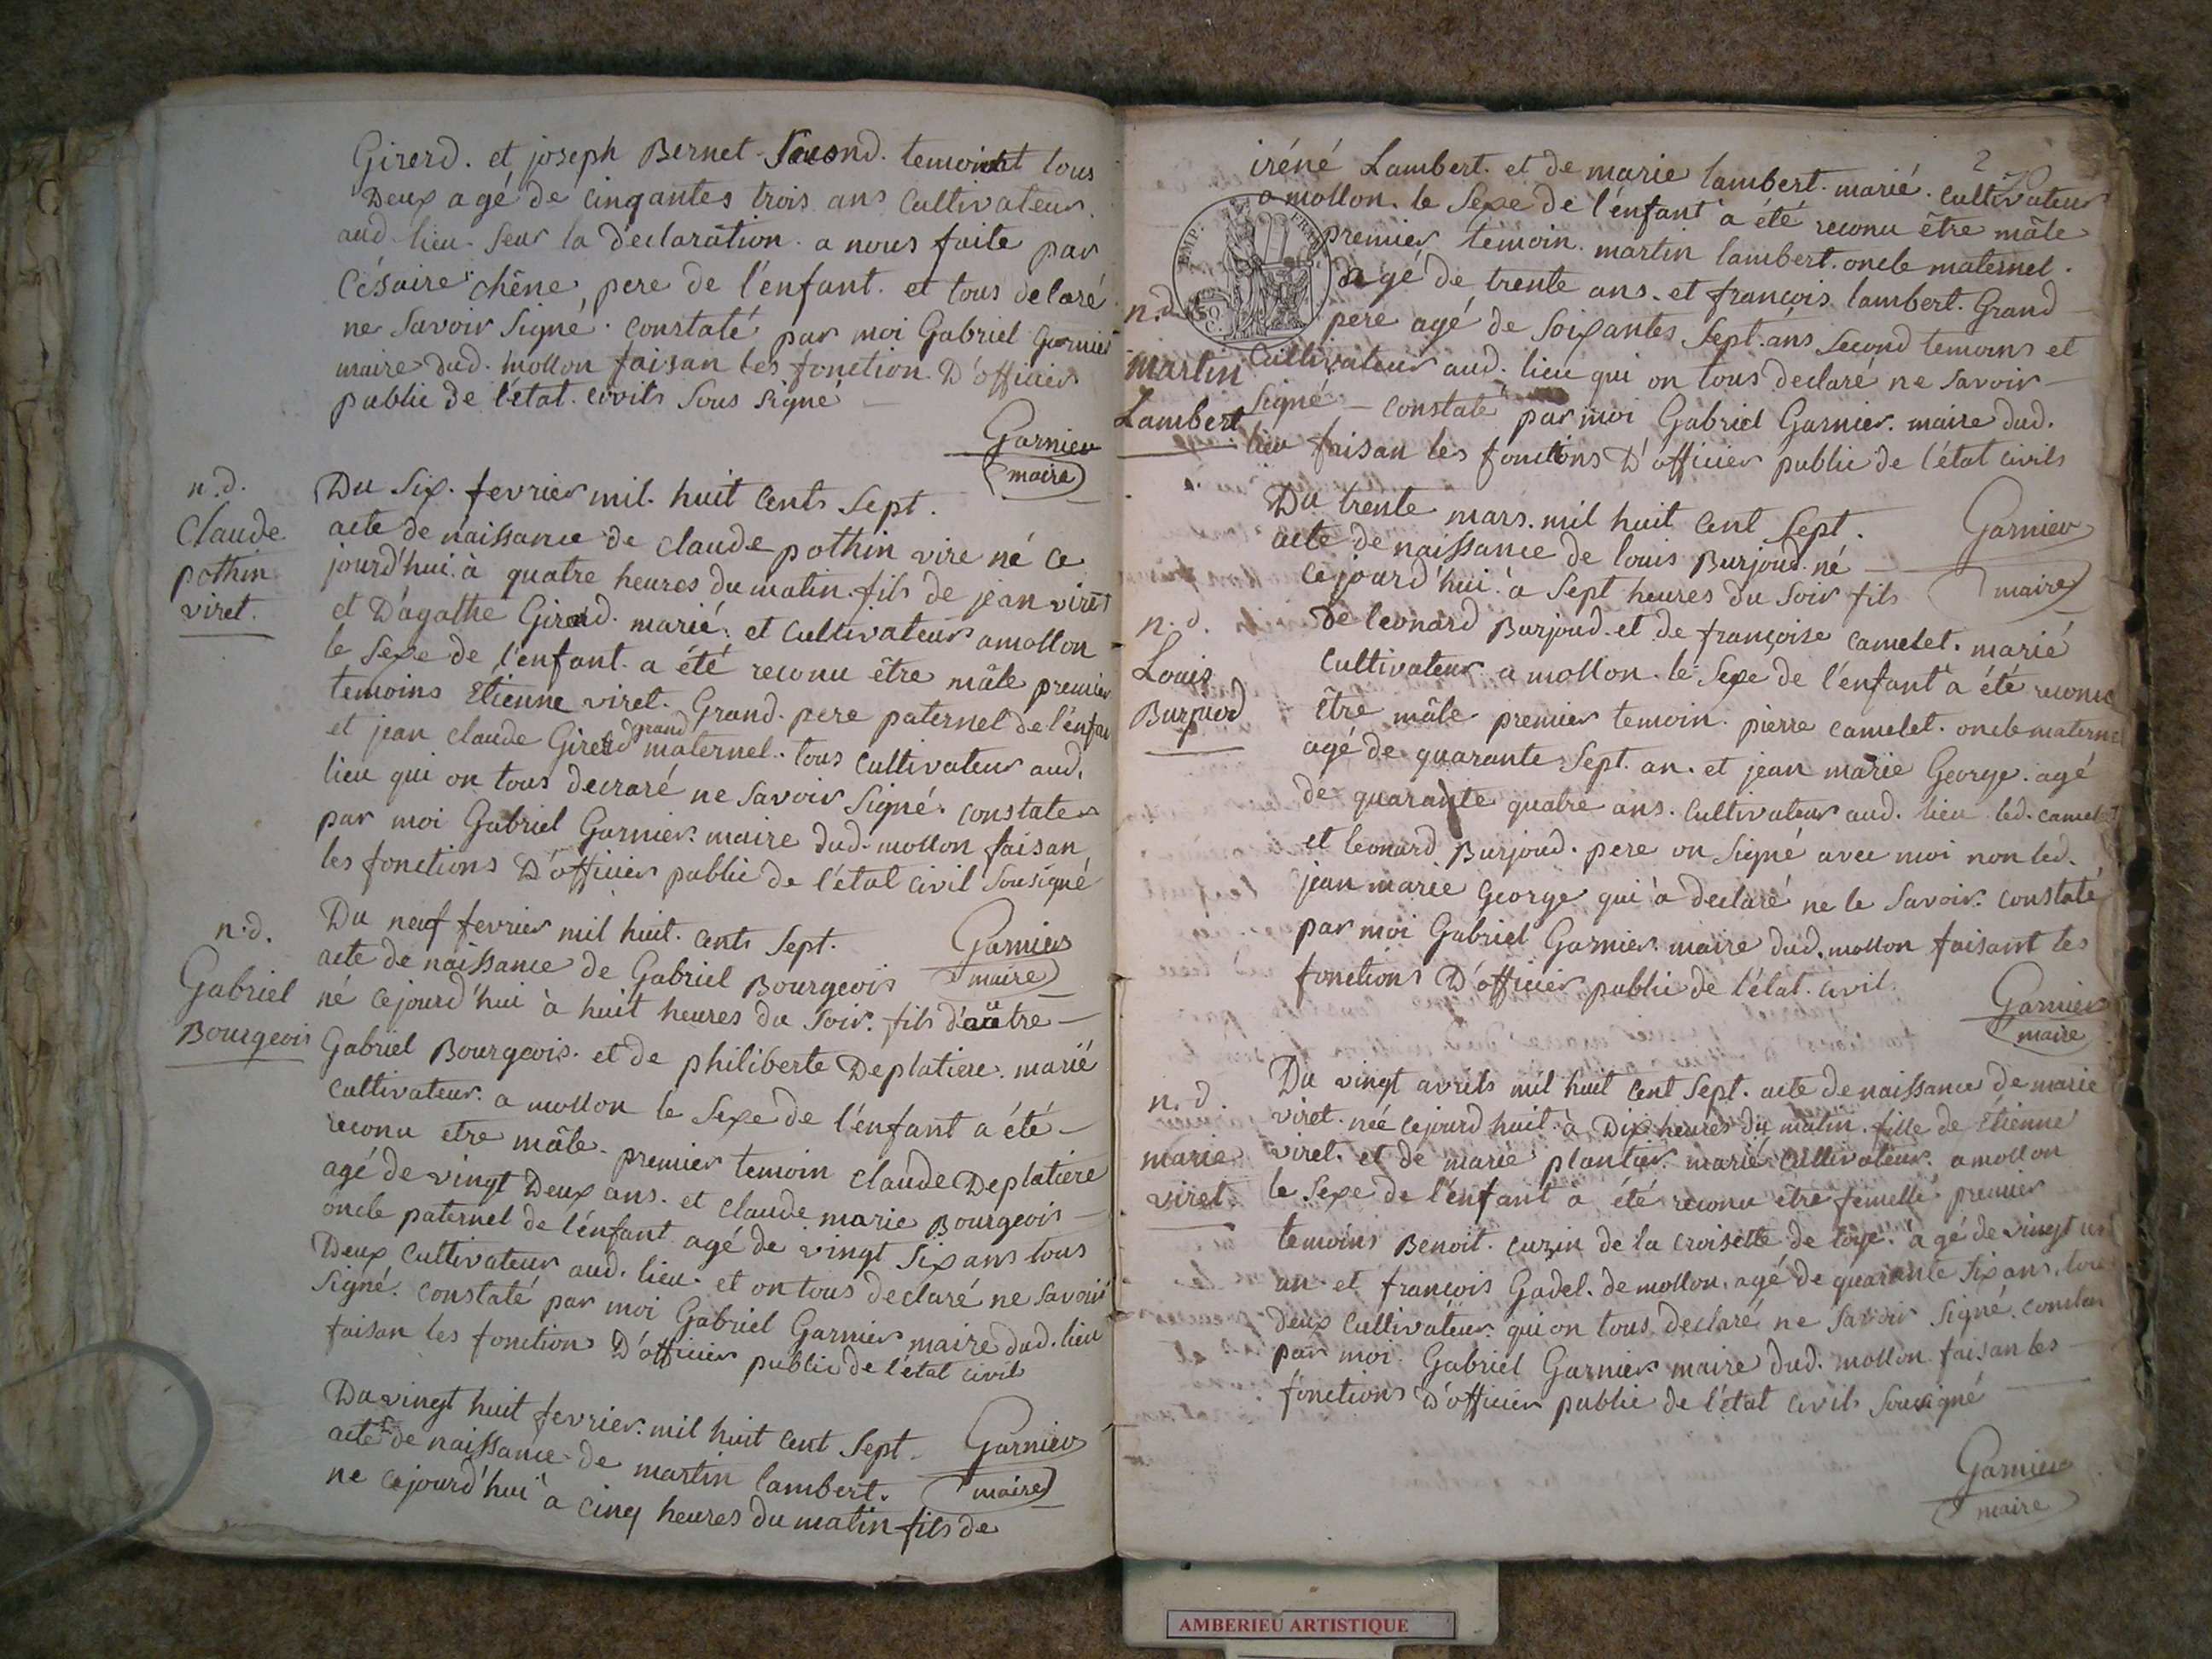 Girerd. et joseph Bernet Second. temoint tous
Deux agé de cinqantes trois ans Cultivateur.
aud. lieu. Seur la déclaration. a nous faite par
Césaire chêne, pere de l'enfant. et tous delaré
ne Savoir Signé. Constaté par moi Gabriel Garnier
maire dud. mollon faisan les fonction D'officier
public de l'état. civils Sous Signé
Garnier
maire
n.d.
Claude
pothin
viret.
Du Six. fevrier mil. huit Cents Sept.
acte de naissance de Claude pothin vire né Ce
jourd'hui. à quatre heures du matin. fils de jean viret
et D'agathe Girerd. marié. et Cultivateur a mollon
le Sexe de l'enfant. a été reconu être mâle premier
temoins Etienne viret. Grand. pere paternel de l'enfan
et jean Claude Girerd grand maternel. tous Cultivateur aud.
lieu qui on tous decraré ne Savoir Signé. constater
par moi Gabriel Garnier. maire dud. mollon faisan
les fonctions D'officier public de l'étal civil Sousigné
n.d.
Gabriel
Bourgeois
Du neuf fevrier mil huit. Cents Sept.
acte de naissance de Gabriel Bourgeois
Garnier
maire
né Cejourd'hui à huit heures du Soir. fils d'aütre
Gabriel Bourgeois. et de philiberte Deplatiere. marié
Cultivateur. a mollon le Sexe de l'énfant a été
reconu etre mâle. premier temoin Claude Deplatiere
agé de vingt Deux ans. et Claude marie Bourgeois
oncle paternel de l'énfant agé de vingt Six ans tous
Deux Cultivateur aud. lieu. et on tous declaré ne Savoir
Signé. Constaté par moi Gabriel Garnier maire dud. lieu
faisan les fonction D'officier public de l'état civil
Du vingt huit fevrier. mil huit Cent Sept.
acte de naissance de martin lambert.
Garnier
maire
ne Cejourd'hui à Cinq heures du matin fils de
2
iréné Lambert. et de marie lambert. marié. Cultivateur
a mollon. le Sexe de l'énfant a été reconu être mâle
premier temoin. martin lambert. oncle maternel.
agé de trente ans. et françois lambert. Grand
n.d.
martin
Lambert
pere agé de Soixantes Sept. ans Second temoins et
Cultivateur aud. lieu qui on tous declaré ne Savoir
Signé - Constaté par moi Gabriel Garnier. maire dud.
lieu faisan les fonctions D'officier public de l'état civils
Du trente mars. mil huit Cent Sept.
Garnier
maire
acte de naissance de louis Burjoud. né
Cejourd'hui à Sept heures du Soir fils
n.d.
Louis
Burjuod
de leonard Burjoud. et de françoise Camelet. marié
Cultivateur a mollon. le Sexe de l'énfant a été reconu
être mâle premier temoin. pierre Camelet. oncle materne
agé de quarante Sept. an. et jean marie George. agé
de quarante quatre ans. Cultivateur aud. lieu led. Camelet
et leonard Burjoud. pere on Signé avec moi non led.
jean marie George qui à declaré ne le Savoir. Constaté
par moi Gabriel Garnier. maire dud. mollon faisant les
fonctions D'officier public de l'état. civil.
Garnier
maire
n.d.
marie
viret
Du vingt avrils mil huit Cent Sept. acte de naissance de marie
viret. née Cejourd huit à Dix heures du matin. fille de Etienne
viret. et de marie plantier. marié Cultivateur. a mollon
le Sexe de l'énfant a été reconu être femelle premier
temoins Benoit. Cuzin de la Croisette de loye. agé de vingt un
an. et françois Gadel. de mollon. agé de quarante Six ans. tou
deux Cultivateur. qui on tous declaré ne Savoir Signé. Constat
par moi. Gabriel Garnier maire dud. mollon faisan les
fonctions D'officier public de l'état civils Sousigné
Garnier
maire
AMBERIEU ARTISTIQUE